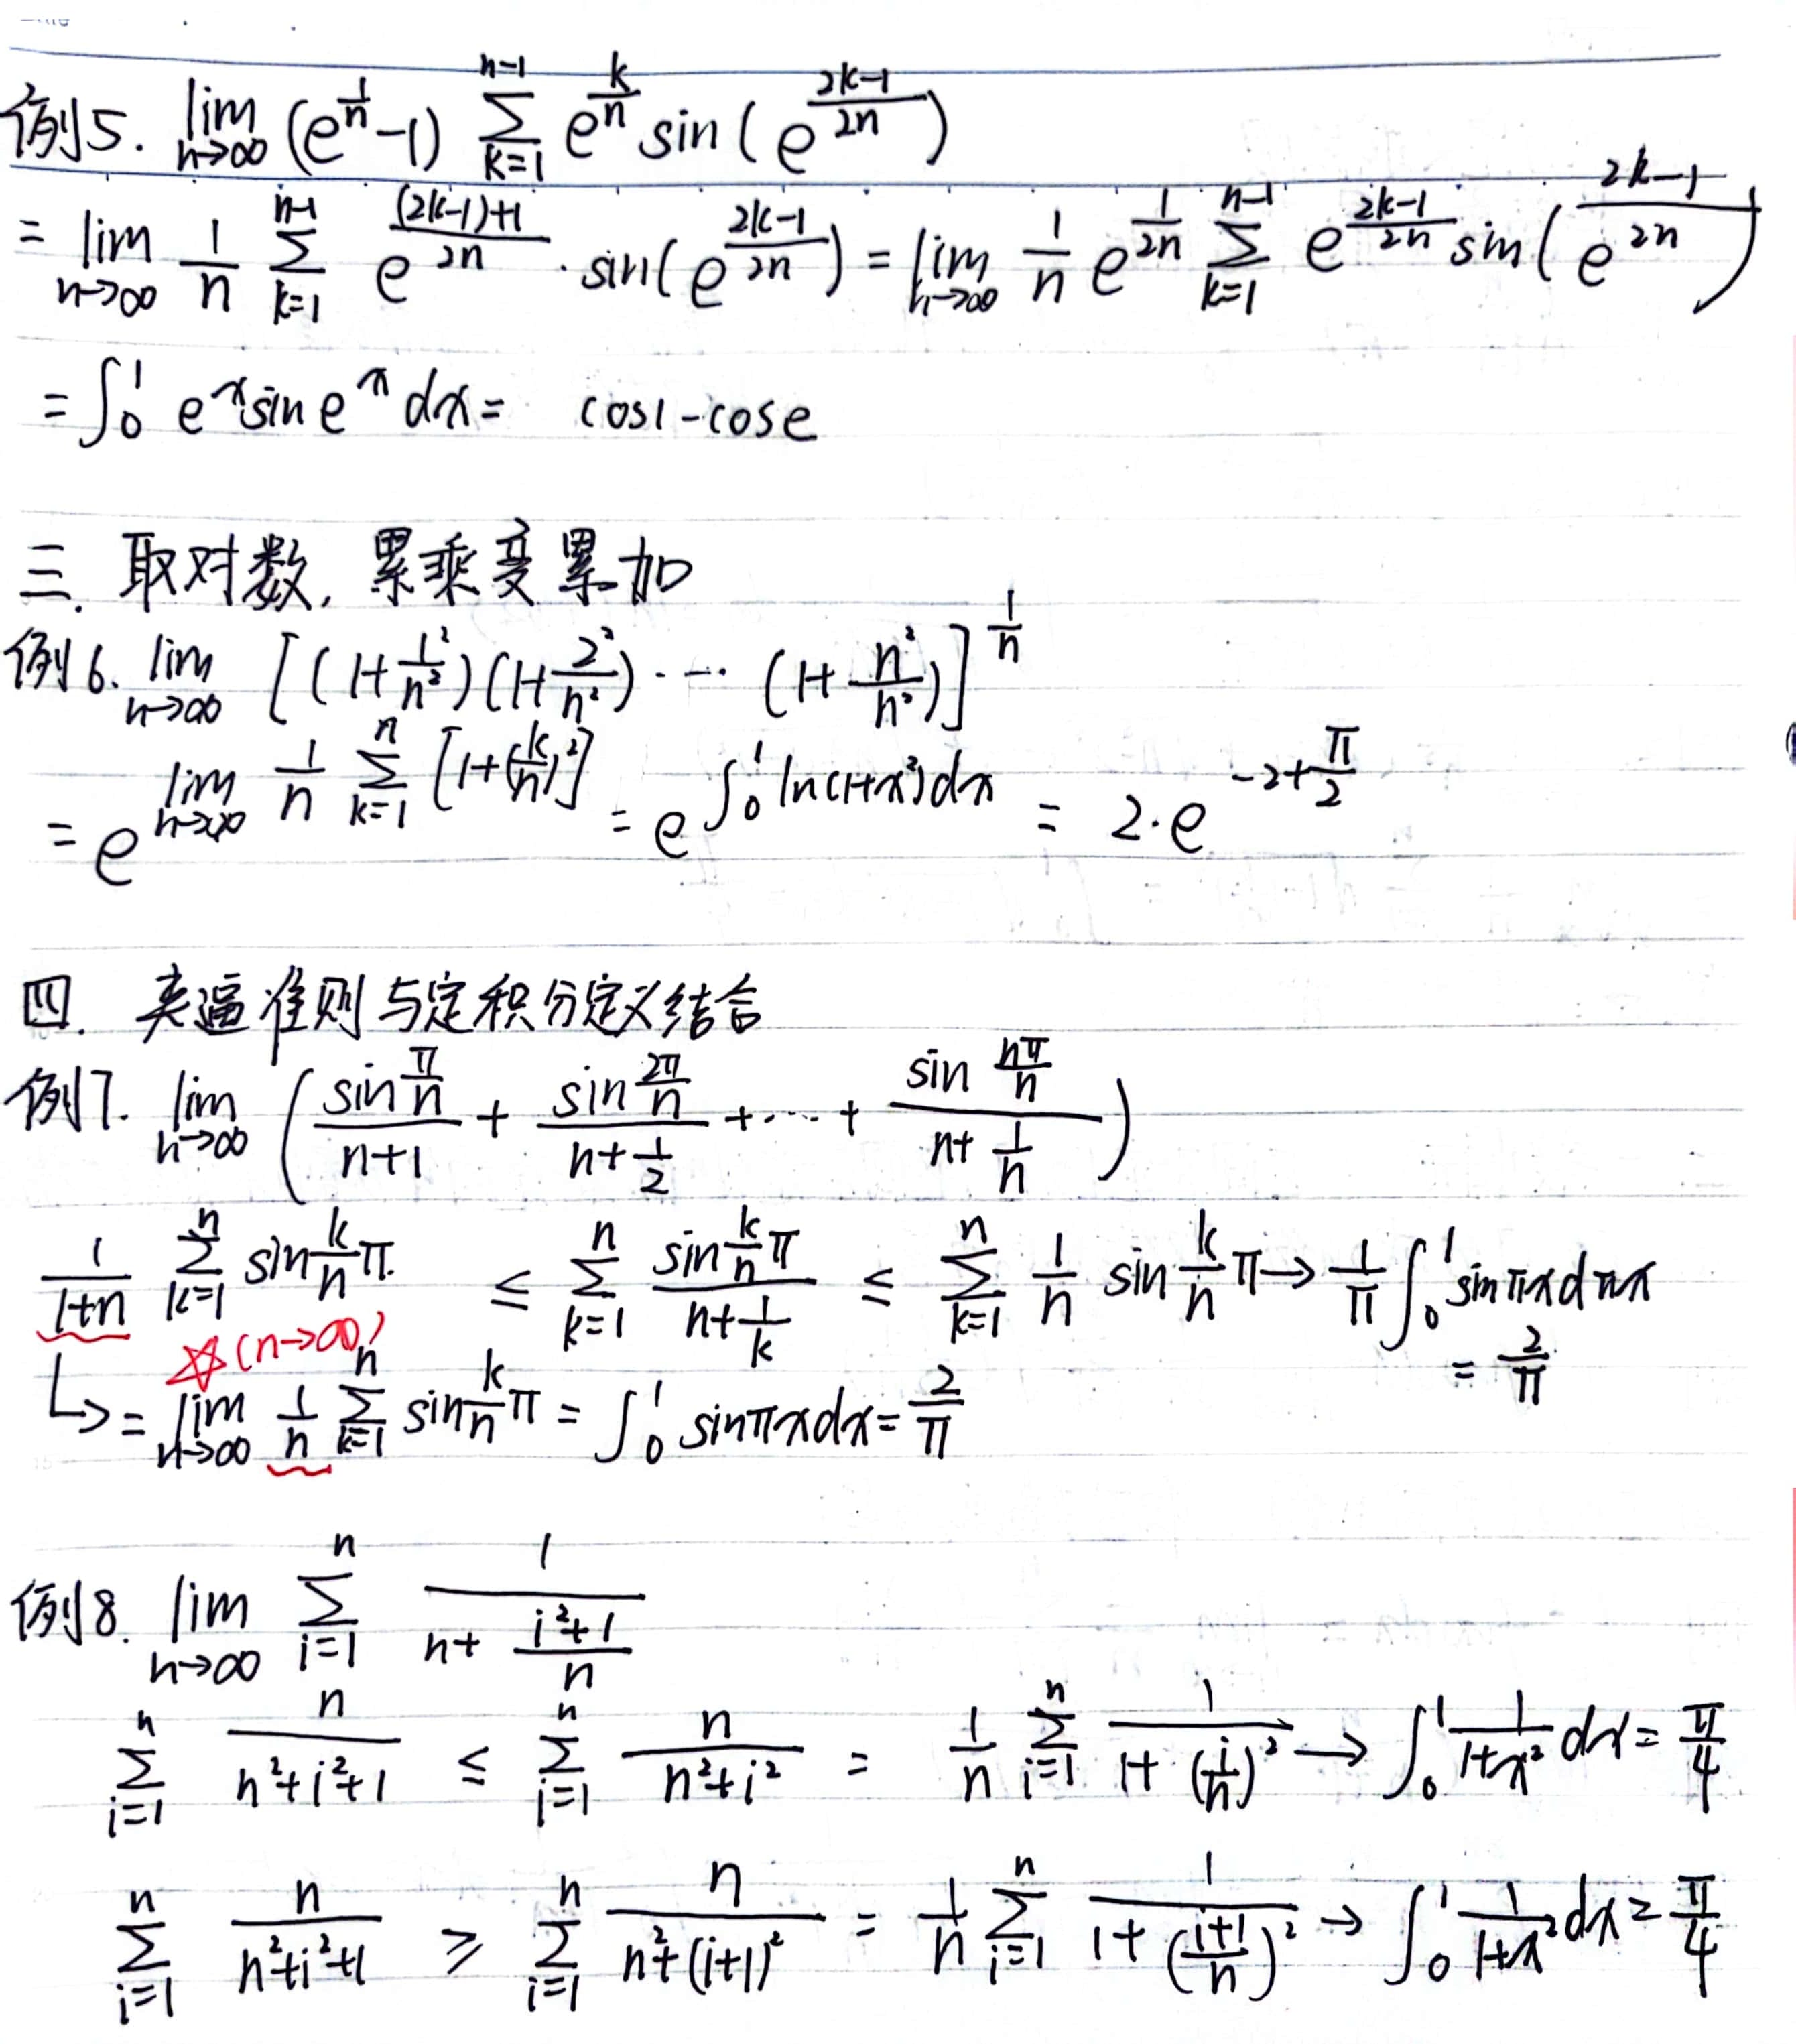 例5. lim_{n→∞} (e^{1/n}-1) ∑_{k=1}^{n-1} e^{k/n} sin(e^{(2k-1)/2n})
= lim_{n→∞} 1/n ∑_{k=1}^{n-1} e^{((2k-1)+1)/2n} · sin(e^{(2k-1)/2n}) = lim_{n→∞} 1/n e^{1/2n} ∑_{k=1}^{n-1} e^{(2k-1)/2n} sin(e^{(2k-1)/2n})
= ∫_0^1 e^x sin e^x dx = cos1-cose
三. 取对数, 累乘变累加
例6. lim_{n→∞} [(1+1²/n²)(1+2²/n²)·····(1+n²/n²)]^{1/n}
= e^{lim_{n→∞} 1/n ∑_{k=1}^{n} [1+(k/n)²]} = e^{∫_0^1 ln(1+x²)dx} = 2·e^{-2+π/2}
四. 夹逼准则与定积分定义结合
例7. lim_{n→∞} (sin π/n / (n+1) + sin 2π/n / (n+1/2) + ···· + sin nπ/n / (n+1/n))
1/(1+n) ∑_{k=1}^{n} sin k/n π. ≤ ∑_{k=1}^{n} sin k/n π / (n+1/k) ≤ ∑_{k=1}^{n} 1/n sin k/n π → 1/π ∫_0^1 sinπx dπx
= 2/π
☆(n→∞)
↳ = lim_{n→∞} 1/n ∑_{k=1}^{n} sin k/n π = ∫_0^1 sinπx dx = 2/π
例8. lim_{n→∞} ∑_{i=1}^{n} 1/(n+(i²+1)/n)
∑_{i=1}^{n} n/(n²+i²+1) ≤ ∑_{i=1}^{n} n/(n²+i²) = 1/n ∑_{i=1}^{n} 1/(1+(i/n)²) → ∫_0^1 1/(1+x²) dx = π/4
∑_{i=1}^{n} n/(n²+i²+1) ≥ ∑_{i=1}^{n} n/(n²+(i+1)²) = 1/n ∑_{i=1}^{n} 1/(1+((i+1)/n)²) → ∫_0^1 1/(1+x²) dx = π/4